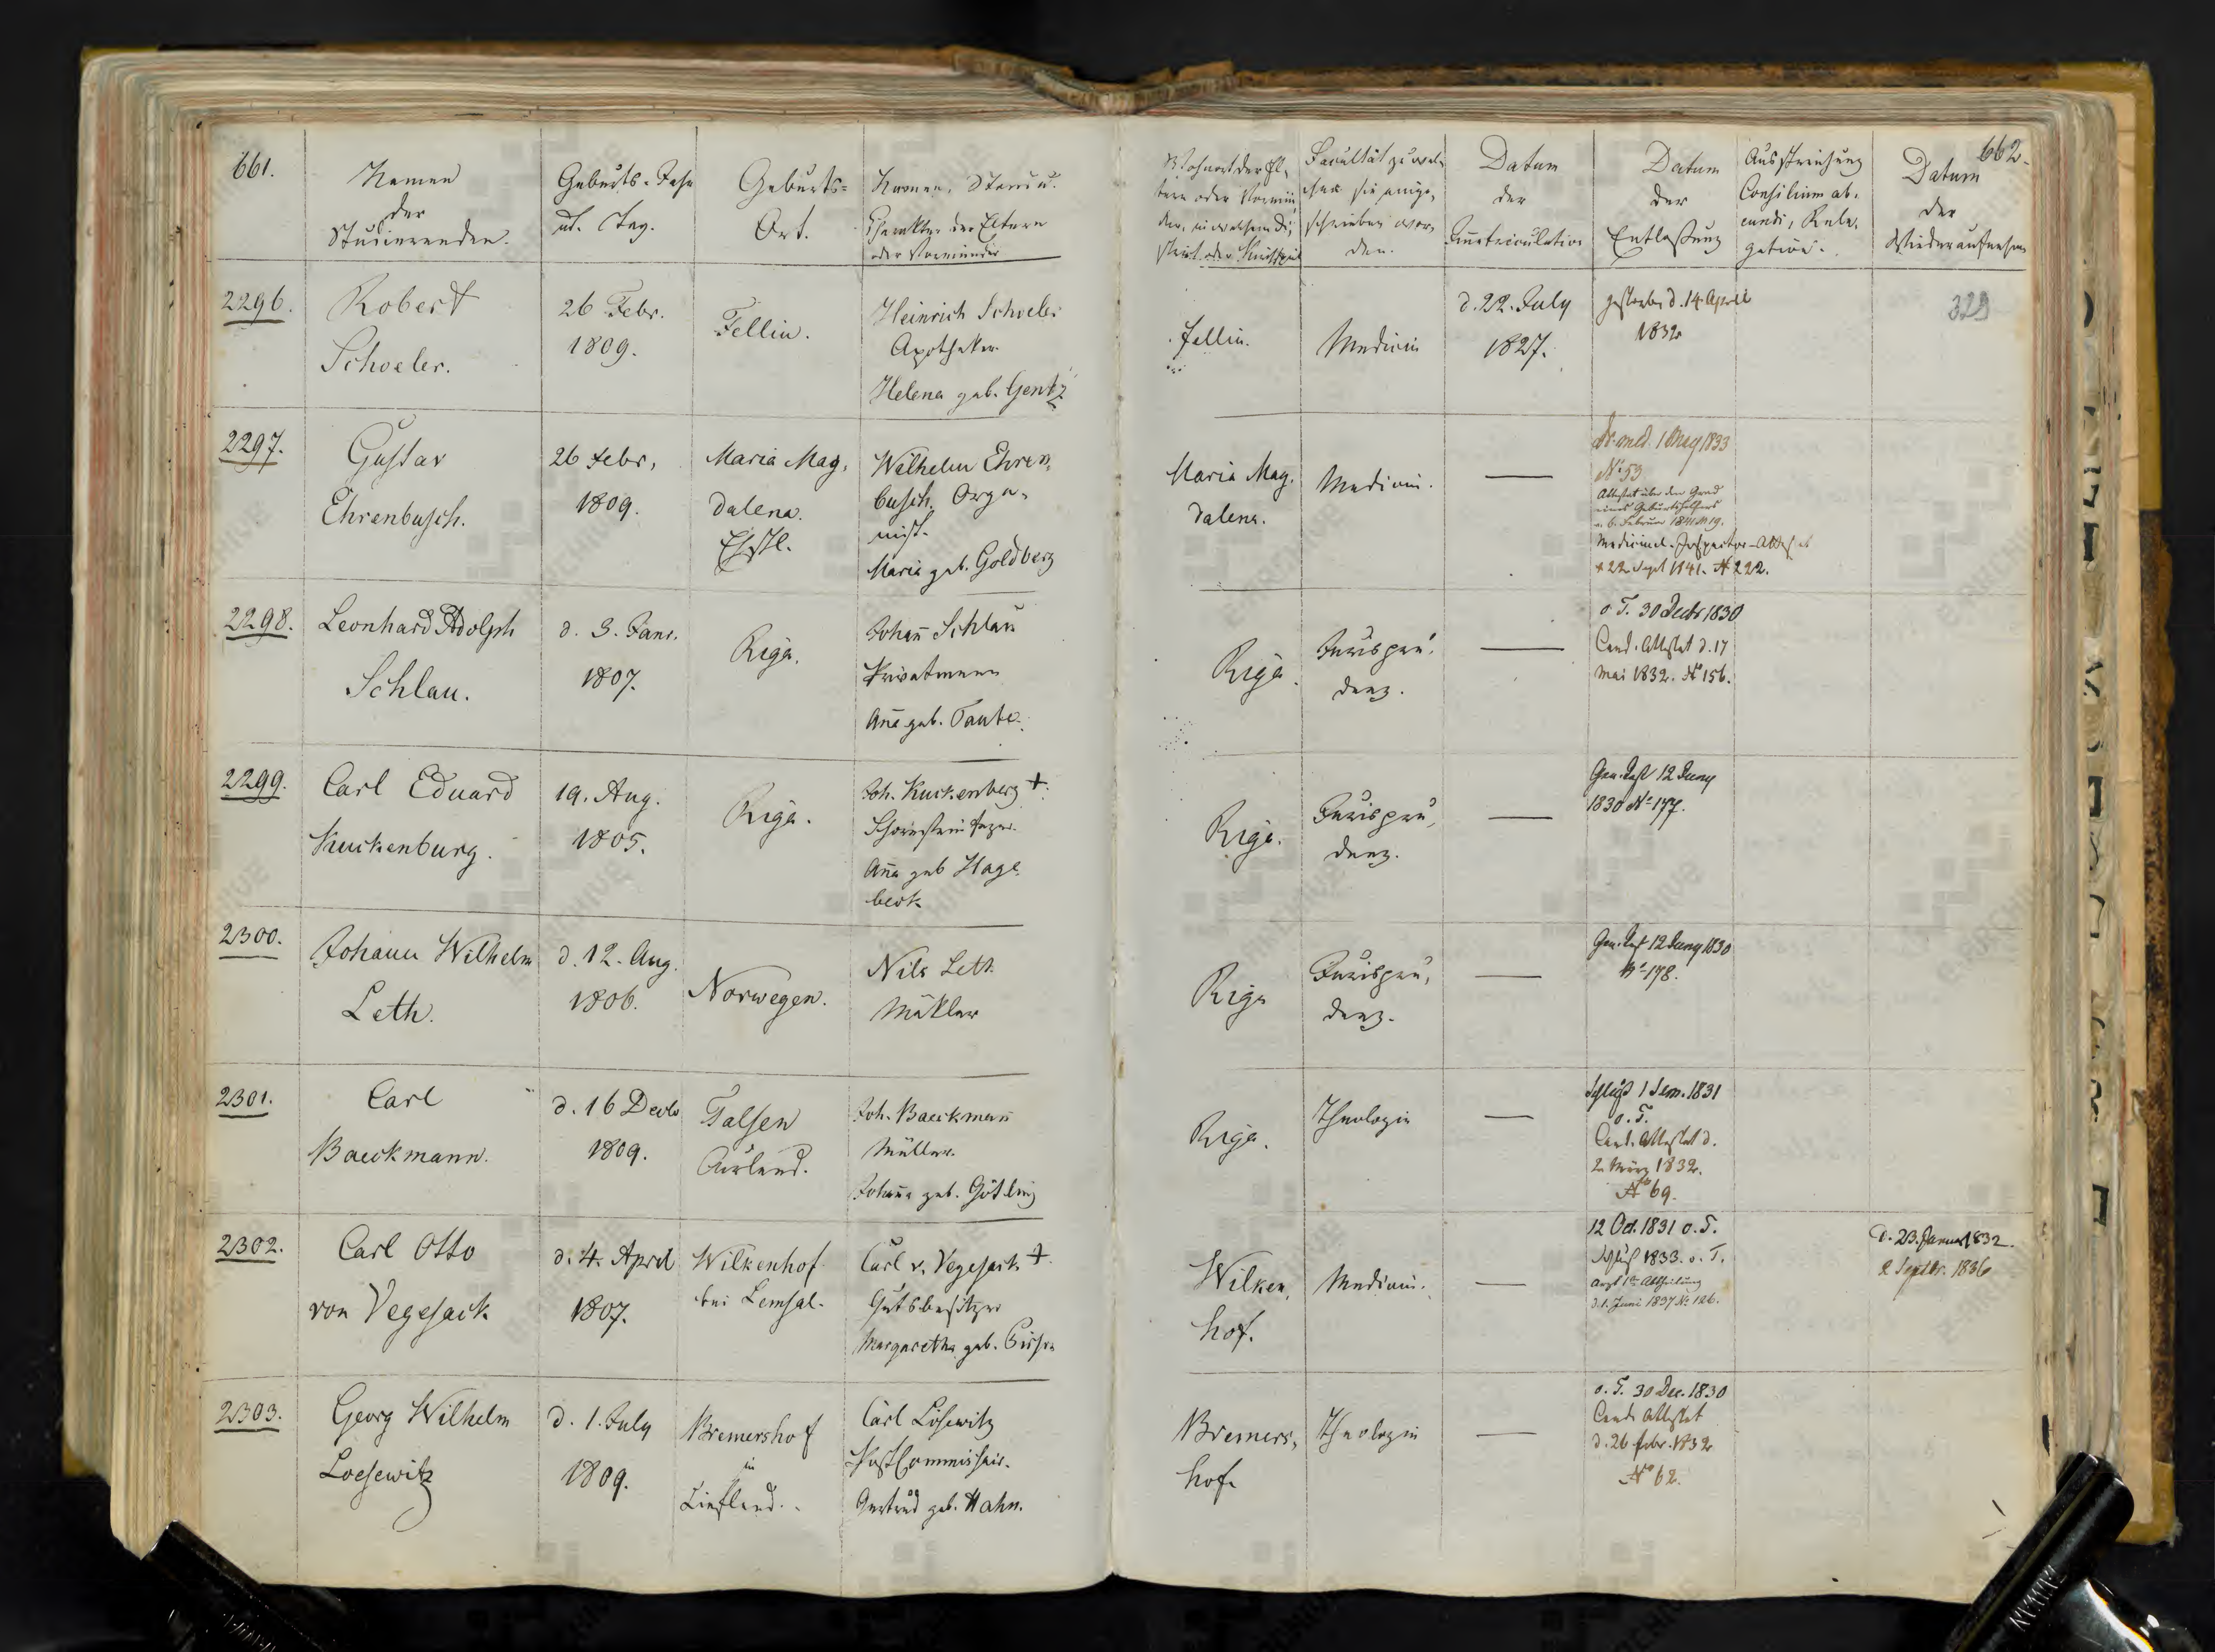 661.
Namen
der
Studierenden.
Geburts-Jahr
u. Tag.
Geburts-
Ort.
Namen, Stand u.
Charakter der Eltern
oder Vormünder
Wohnort der El-
tern oder Vormün-
der, in welchem Di-
strict oder Kirchspiel
Facultät zu wel-
cher sie einge-
schrieben wor-
den.
Datum
der
Immatriculation
Datum
der
Entlaßung
Ausstreichung
Consilium ab-
eundi, Rele-
gation.
662.
Datum
der
Wiederaufnahme
2296.
Robert
Schoeler.
26 Febr.
1809.
Fellin.
Heinrich Schoeler
Apotheker
Helena geb. Gentz
Fellin.
Medicin
d. 22. July
1827.
gestorben d. 14. April
1832
329
2297.
Gustav
Ehrenbusch.
26 Febr.
1809.
Maria Mag-
dalena.
Ehstl.
Wilhelm Ehren-
busch. Orga-
nist.
Maria geb. Goldberg
Maria Mag-
dalena.
Medicin.
Dr. med. 1 May 1833
No 53
Attestat über den Grad
eines Geburtshelfers
v. 6. Februar 1841 № 19.
Medicinal-Inspector-Attestat
d 22 Sept 1841. № 222.
2298.
Leonhard Adolph
Schlau.
d. 3. Janr.
1807.
Riga.
Johañ Schlau
Privatmann
Aña geb. Taube.
Riga.
Jurispru-
denz.
o. T. 30 Decbr 1830
Cand. Attestat d. 17
Mai 1832. № 156.
2299.
Carl Eduard
Kuckenburg.
19. Aug.
1805.
Riga.
Joh. Kuckenberg †.
Schornsteinfeger.
Aña geb Hage-
beck
Riga.
Jurispru-
denz.
12 Juny
1830 No 177.
2300.
Johann Wilhelm
Leth.
d. 12. Aug.
1806.
Norwegen.
Nils Leth
Mäkler
Riga
Jurispru-
denz.
12 Juny 1830
No 178.
2301.
Carl
Baeckmann.
d. 16 Decbr
1809.
Talsen
Curland.
Joh. Baeckmañ
Müller.
Johaña geb. Götling
Riga.
Theologie
Schluß 1 Sem. 1831
o. T.
Cand. Attestat d.
2. März 1832.
№ 69.
2302.
Carl Otto
von Vegesack
d. 4. April
1807.
Wilkenhof
bei Lemsal.
Carl v. Vegesack †.
Gutsbesitzer
Margaretha geb.
Wilken-
hof.
Medicin.
12 Oct. 1831 o. T.
Schluß 1833. o. T.
Arzt 1ter Abtheilung
d. 1. Juni 1837 No 126.
d. 23. Januar 1832.
2 Septbr. 1836
2303.
Georg Wilhelm
Loesewitz
d. 1. July
1809.
Bremershof
in
Liefland.
Carl Lösewitz
Post Commissair.
Gertrud geb. Hahn.
Bremers-
hof
Theologie
o. T. 30 Dec. 1830
Cand. Attestat
d. 26 Febr. 1832
№ 62.